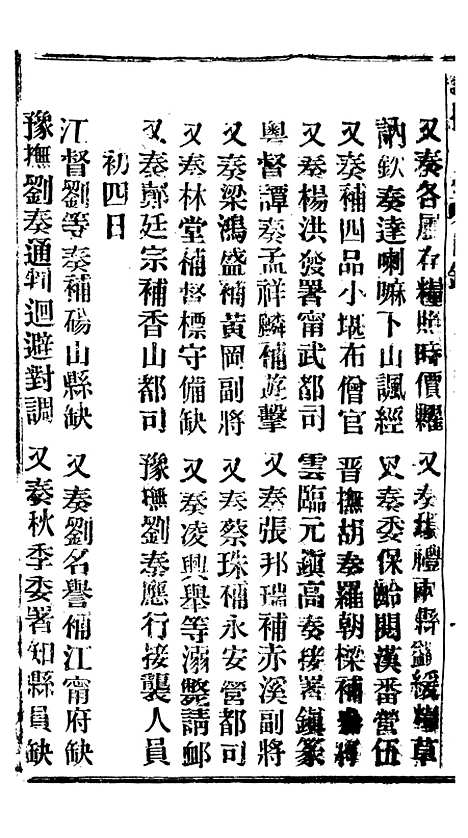 又奏各屬存糧照時價糶　又奏瑞禮兩縣蠲緩糧草
訥欽奏達喇嘛下山諷經　又奏委保齡閱漢番營伍
又奏補四品小堪布僧官　晉撫胡奏羅朝樑補叅將
又奏楊洪發署甯武都司　雲臨元鎮高奏接署鎮篆
粵督譚奏孟祥麟補遊擊　又奏張邦瑞補赤溪副將
又奏梁鴻盛補黃岡副將　又奏蔡珠補永安營都司
又奏林堂補督標守備缺　又奏凌興舉等溺斃請卹
又奏鄭廷宗補香山都司　豫撫劉奏應行接襲人員
初四日
江督劉等奏補碭山縣缺　又奏劉名譽補江甯府缺
豫撫劉奏通判迴避對調　又奏秋季委署知縣員缺